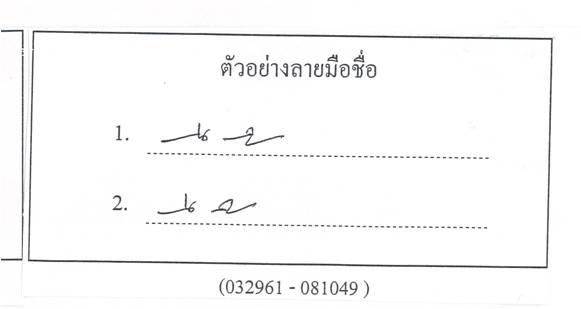 ตัวอย่างลายมือชื่อ
1.
2.
(032961 - 081049 )